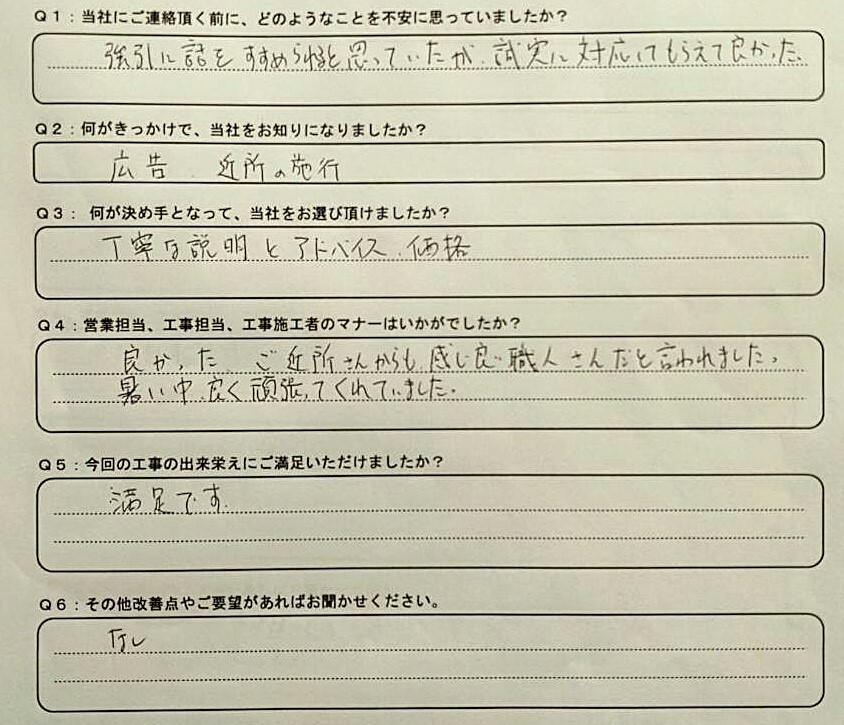 Q1：当社にご連絡頂く前に、どのようなことを不安に思っていましたか？
強引に話をすすめられると思っていたが、誠実に対応してもらえて良かった。
Q2：何がきっかけで、当社をお知りになりましたか？
広告、近所の施行
Q3： 何が決め手となって、当社をお選び頂けましたか？
丁寧な説明とアドバイス、価格
Q4：営業担当、工事担当、工事施工者のマナーはいかがでしたか？
良かった、ご近所さんからも感じ良い職人さんだと言われました。
暑い中、良く頑張ってくれていました。
Q5：今回の工事の出来栄えにご満足いただけましたか？
満足です。
Q6：その他改善点やご要望があればお聞かせください。
なし